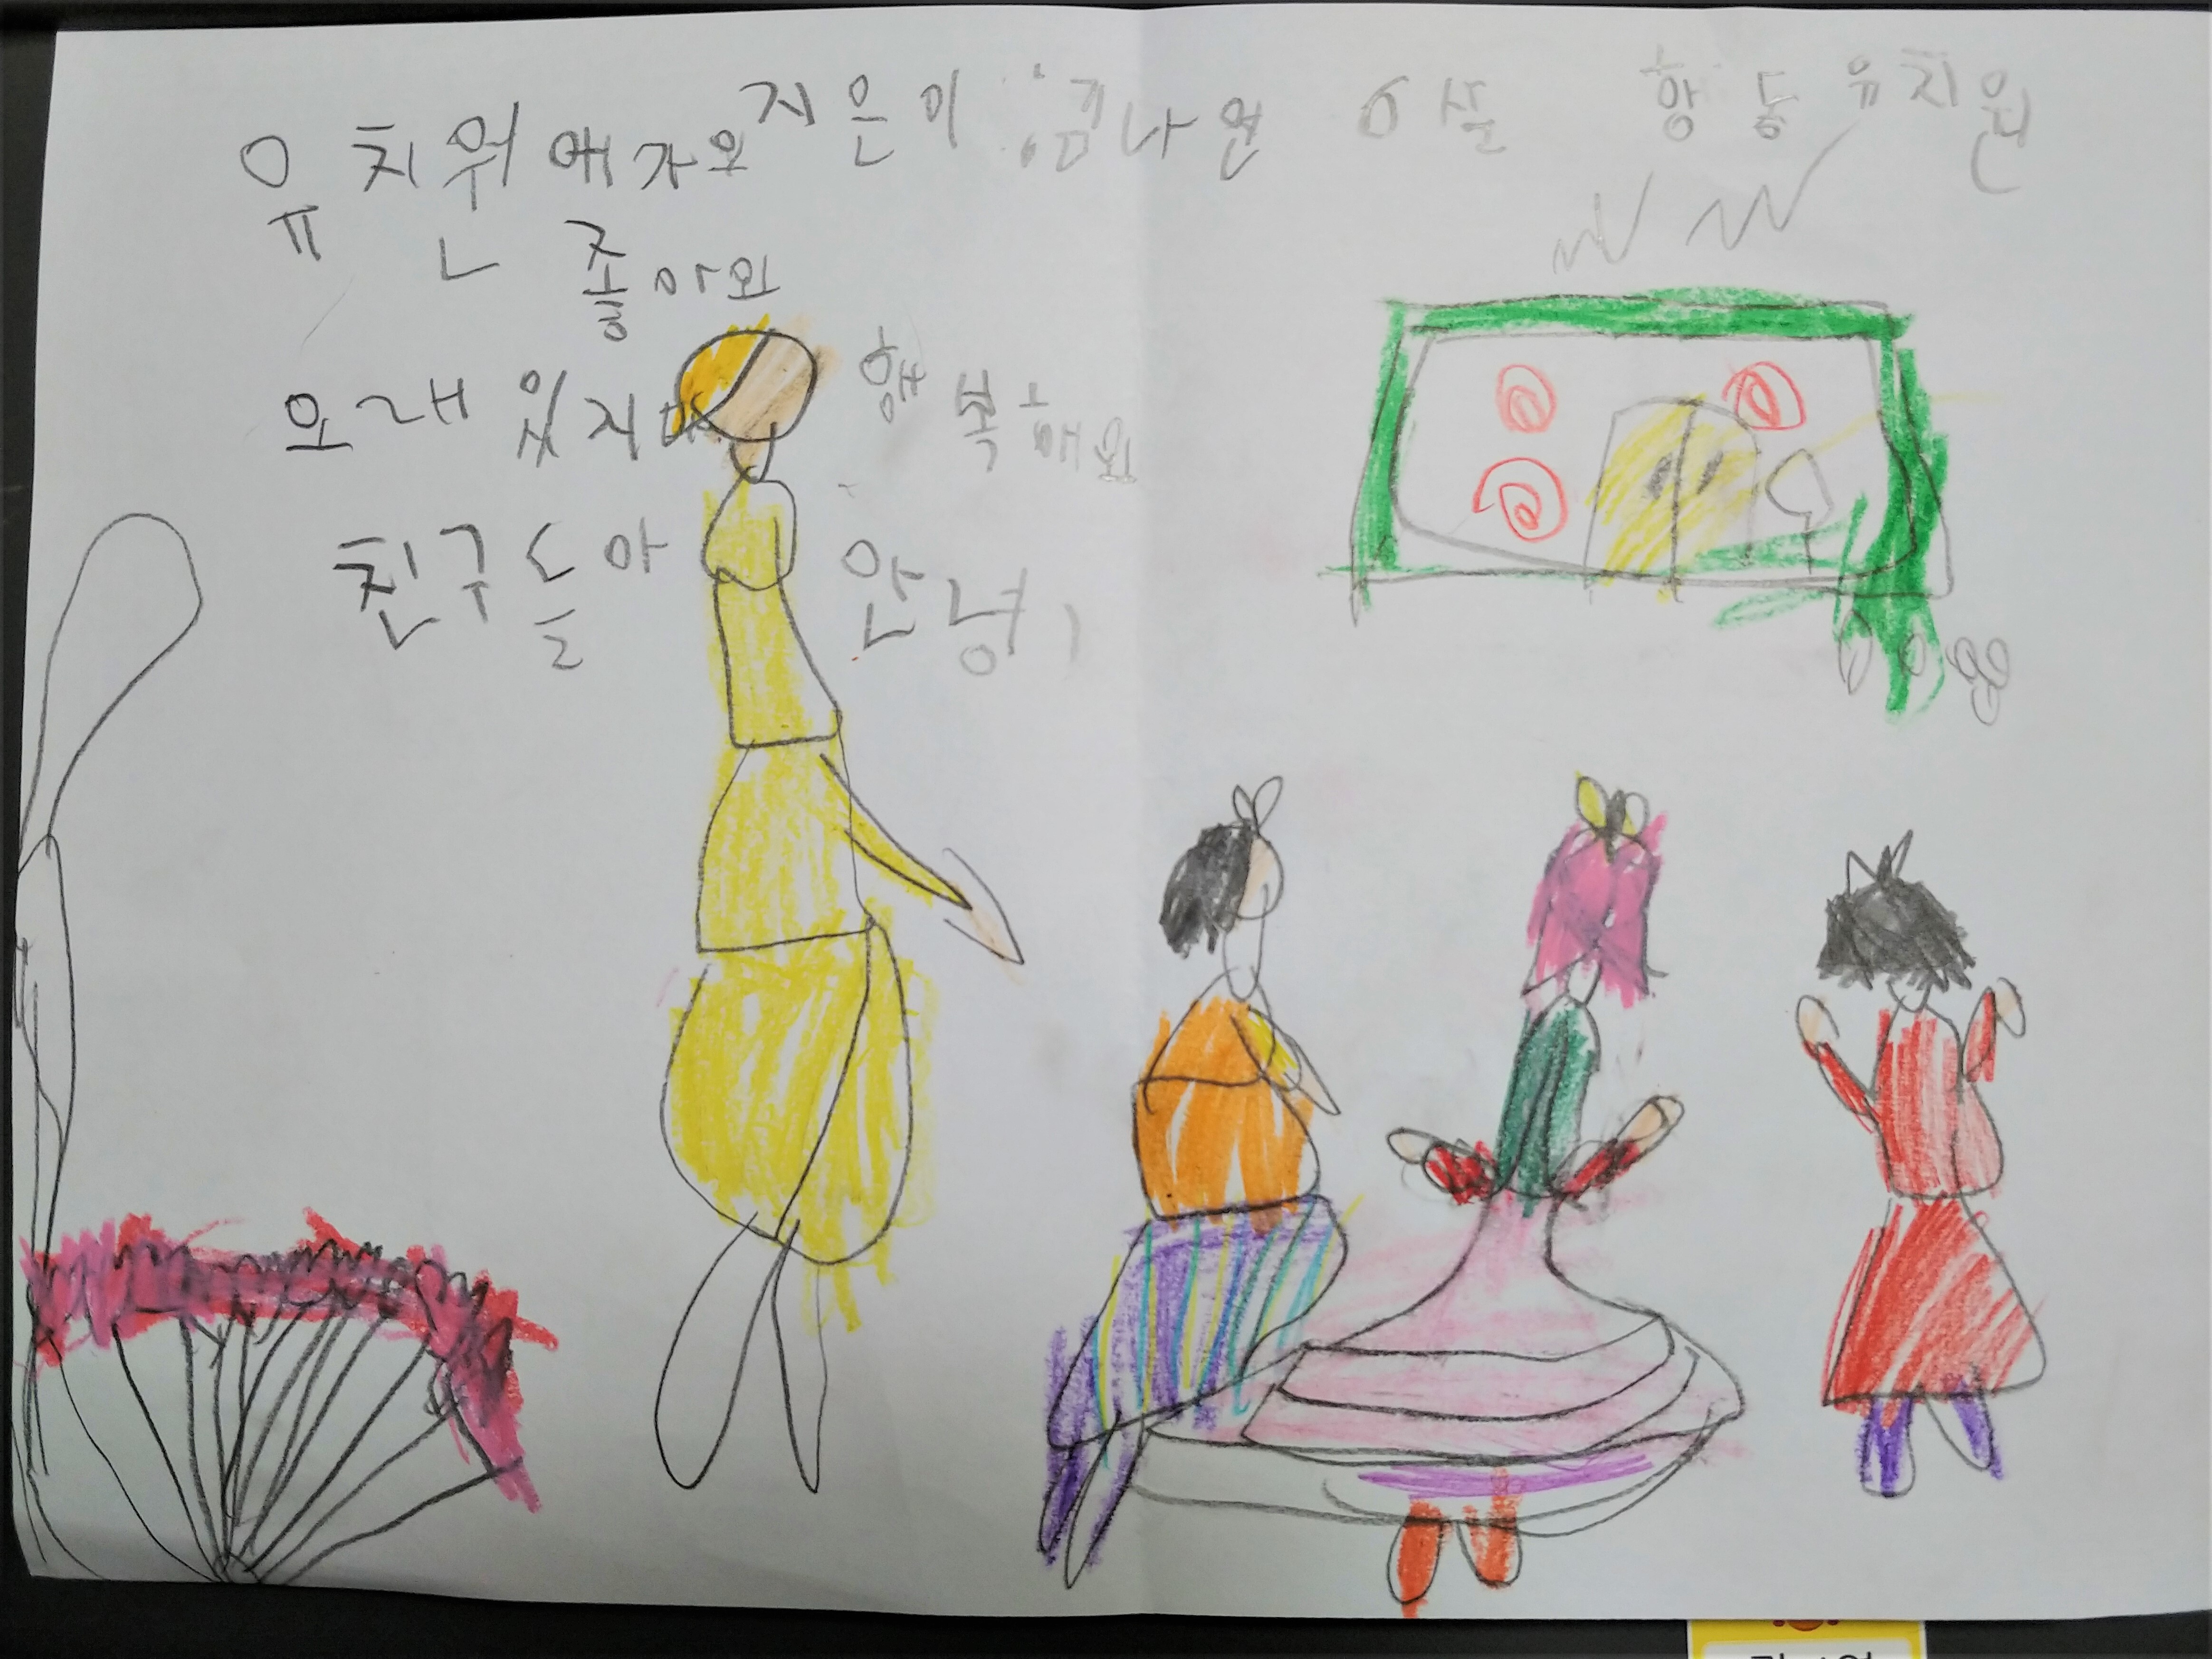 유치원애가요 지은이 : 김나원 6살 항동유치원
좋아요
오래 있지 행복해요
친구들아 안녕!